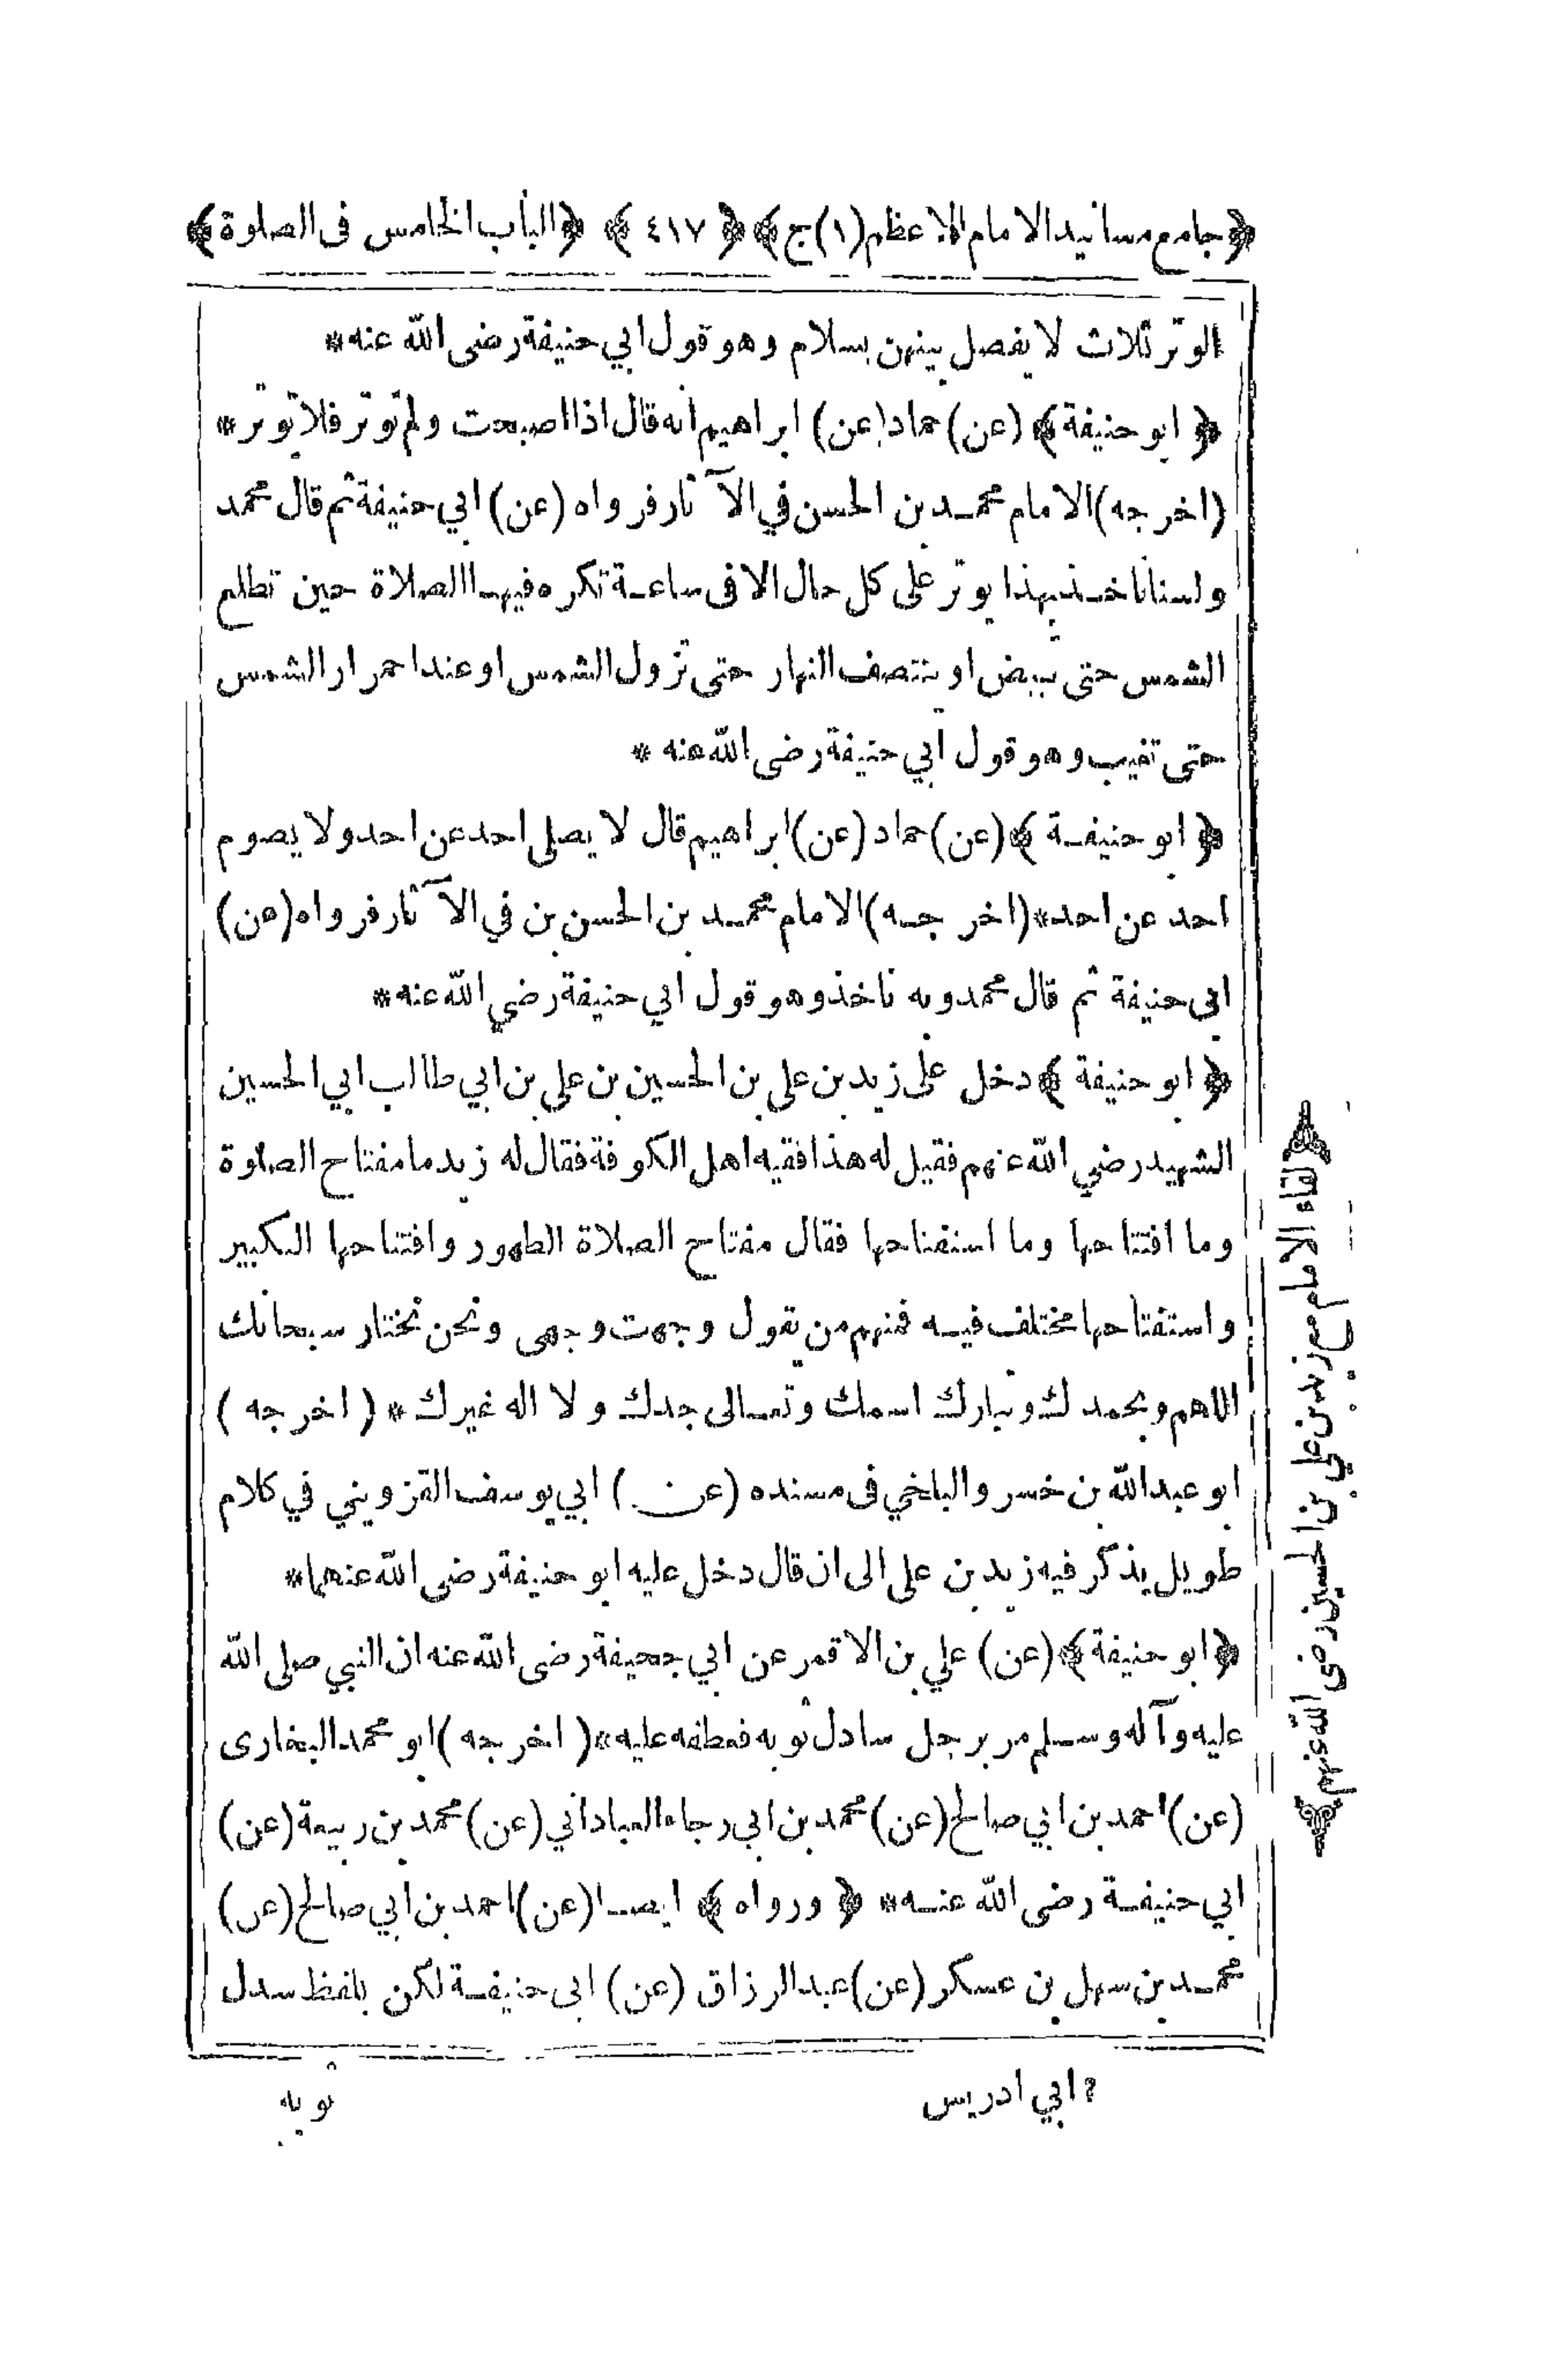 ﴿جامع مسانيد الامام الاعظم (١) ج﴾ ﴿ ٤١٧ ﴾ ﴿الباب الخامس فى الصلوة﴾
الوتر ثلاث لا يفصل بينهن بسلام وهو قول ابي حنيفة رضى الله عنه *
﴿ ابو حنيفة ﴾ (عن) حماد (عن) ابراهيم انه قال اذا اصبحت ولم توتر فلا توتر *
(اخرجه) الامام محمد بن الحسن في الآثار فرواه (عن) ابي حنيفة ثم قال محمد
ولسنا ناخذ بهذا يوتر على كل حال الا فى ساعة تكره فيها الصلاة حين تطلع
الشمس حتى تبيض او ينتصف النهار حتى تزول الشمس او عند احمرار الشمس
حتى تغيب وهو قول ابي حنيفة رضى الله عنه *
﴿ ابو حنيفة ﴾ (عن) حماد (عن) ابراهيم قال لا يصلى احد عن احد ولا يصوم
احد عن احد * (اخرجه) الامام محمد بن الحسن بن في الآثار فرواه (عن)
ابى حنيفة ثم قال محمد وبه ناخذ وهو قول ابي حنيفة رضي الله عنه *
﴿ ابو حنيفة ﴾ دخل على زيد بن علي بن الحسين بن علي بن ابي طالب ابي الحسين
الشهيد رضي الله عنهم فقيل له هذا فقيه اهل الكوفة فقال له زيد ما مفتاح الصلوة
وما افتتاحها وما استفتاحها فقال مفتاح الصلاة الطهور وافتتاحها التكبير
واستفتاحها مختلف فيه فمنهم من يقول وجهت وجهى ونحن نختار سبحانك
اللهم وبحمدك وتبارك اسمك وتعالى جدك ولا اله غيرك * ( اخرجه )
ابو عبدالله بن خسرو البلخي فى مسنده (عن) ابي يوسف القزويني في كلام
طويل يذكر فيه زيد بن على الى ان قال دخل عليه ابو حنيفة رضى الله عنهما *
﴿ابو حنيفة﴾ (عن) علي بن الاقمر عن ابي جحيفة رضى الله عنه ان النبي صلى الله
عليه وآله وسلم مر برجل سادل ثوبه فعطفه عليه * ( اخرجه ) ابو محمد البخارى
(عن) احمد بن ابي صالح (عن) محمد بن ابي رجاء العباداني (عن) محمد بن ربيعة (عن)
ابي حنيفة رضى الله عنه * ﴿ ورواه ﴾ ايضا (عن) احمد بن ابي صالح (عن)
محمد بن سهل بن عسكر (عن) عبدالرزاق (عن) ابى حنيفة لكن بلفظ سدل
ثوبه
٢ ابي ادريس
لقاء الامام مع زيد بن علي بن الحسين رضى الله عنهم